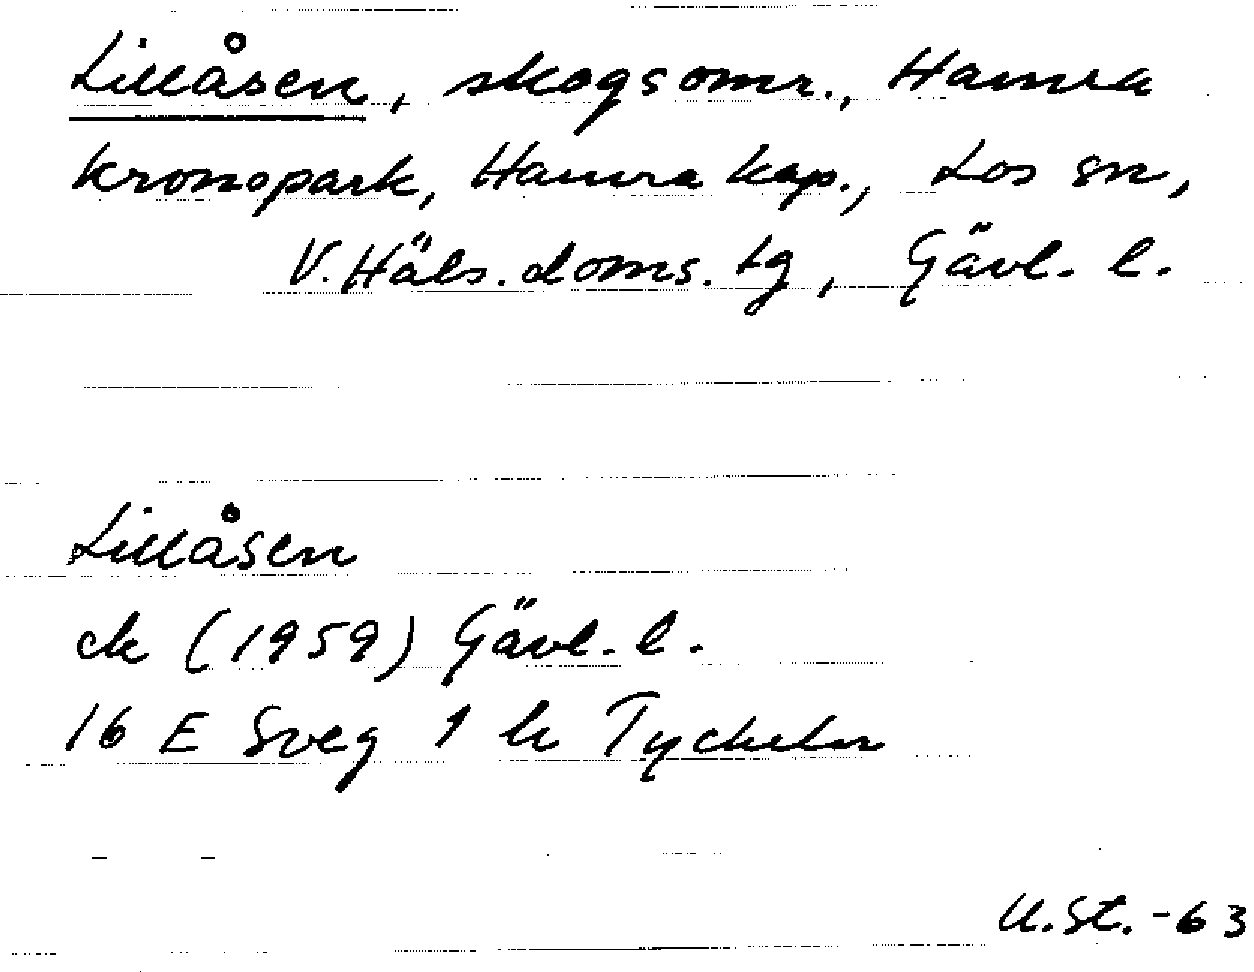 Lillåsen, skogsomr., Hamra
kronopark, Hamra kap., Los sn,
V. Häls. doms. tg, Gävl. l.
Lillåsen
ek (1959) Gävl. l.
16 E Sveg 1 h Tyckeln
U.St. -63